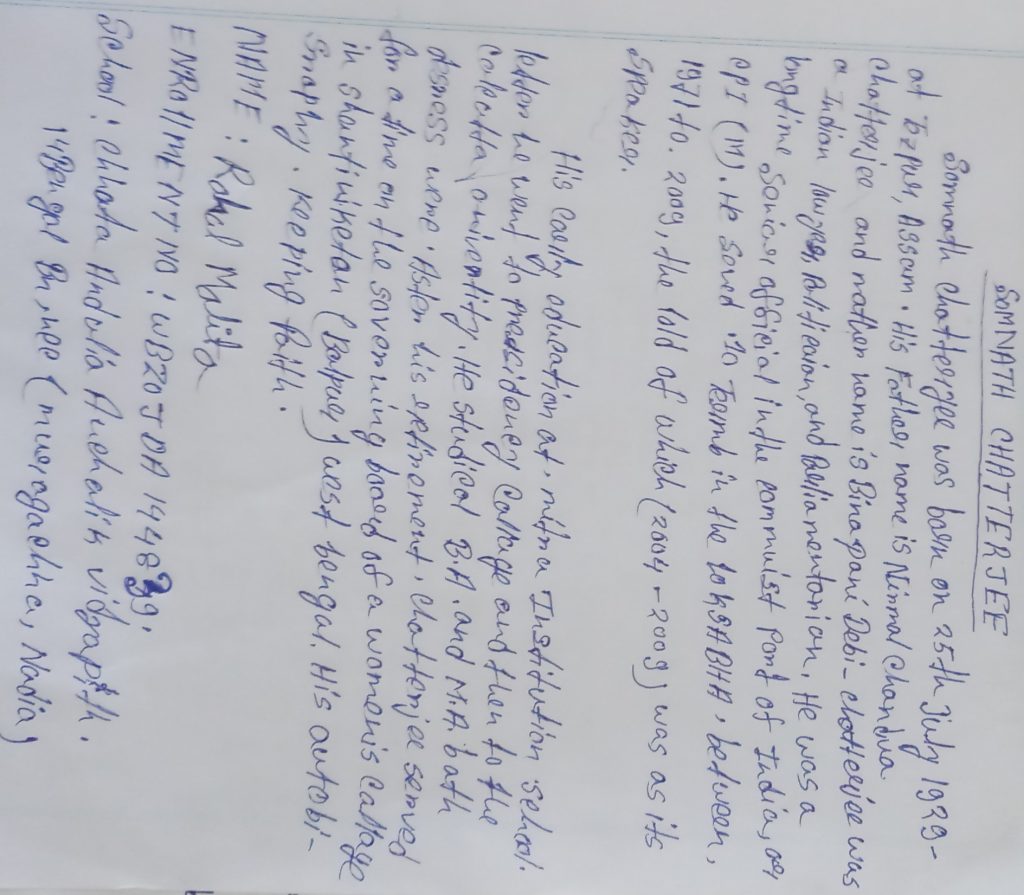 SOMNATH CHATTERJEE
Somnath chatterjee was born on 25th July 1929-
at Tezpur, Assam. His Father name is Nirmal Chandra
chatterjee and mother name is Binapani Debi- chatterjee was
a Indian lawyer, Politician, and Parliamentarian. He was a
longtime Senior official in the communist Part of India, or
CPI (M). He served 10 Terms in the LOKSABHA, between,
1971 to 2009, the last of which (2004-2009) was as its
Speaker.
His early education at mitra Institution school.
latter he went to presidency Collage and then to the
Calcutta university. He studied B.A. and M.A. both
were. After his retirement, chatterjee served
for a time on the governing board of a women's collage
in shantiniketan (Bolpur) west bengal. His autobi-
graphy. Keeping faith.
NAME : Rahul Malita
ENROLLMENT NO : WB20JDA144839.
School : Chhota Andulia Anchalik vidyapith.
14 Bengal (muragachha, Nadia)